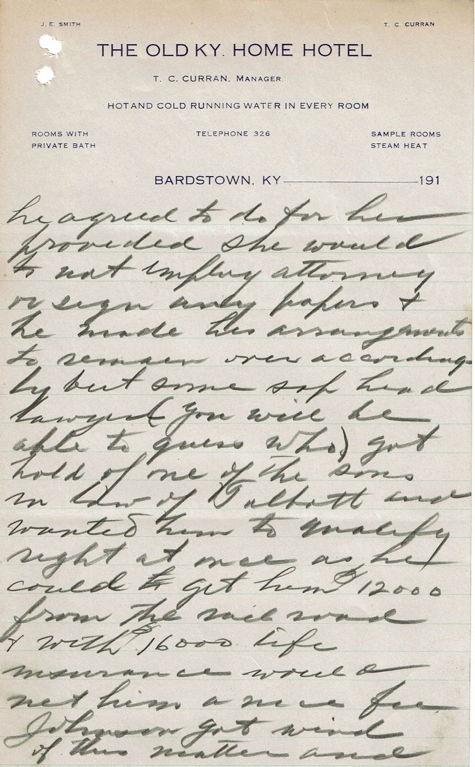 J. E. SMITH
T. C. CURRAN
THE OLD KY. HOME HOTEL
T. C. CURRAN, MANAGER.
HOT AND COLD RUNNING WATER IN EVERY ROOM
ROOMS WITH
PRIVATE BATH
TELEPHONE 326
SAMPLE ROOMS
STEAM HEAT
BARDSTOWN, KY 191
he agreed to do for her
provided she would
to not employ attorney
or sign any papers &
he made his arrangements
to remain over according
ly but some sap head
lawyer (you will be
able to guess who) got
hold of one of the sons
in law of Talbott and
wanted him to qualify
right at once as he
could to get him $12000
from the rail road
& with $16000 life
insurance would
net him a nice fee
Johnson got wind
of this matter and